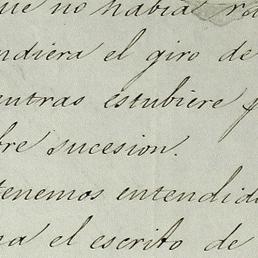 ue no habia ra
ndiera el giro de
entras estubiere
bre sucesion.
tenemos entendido
na el escrito de